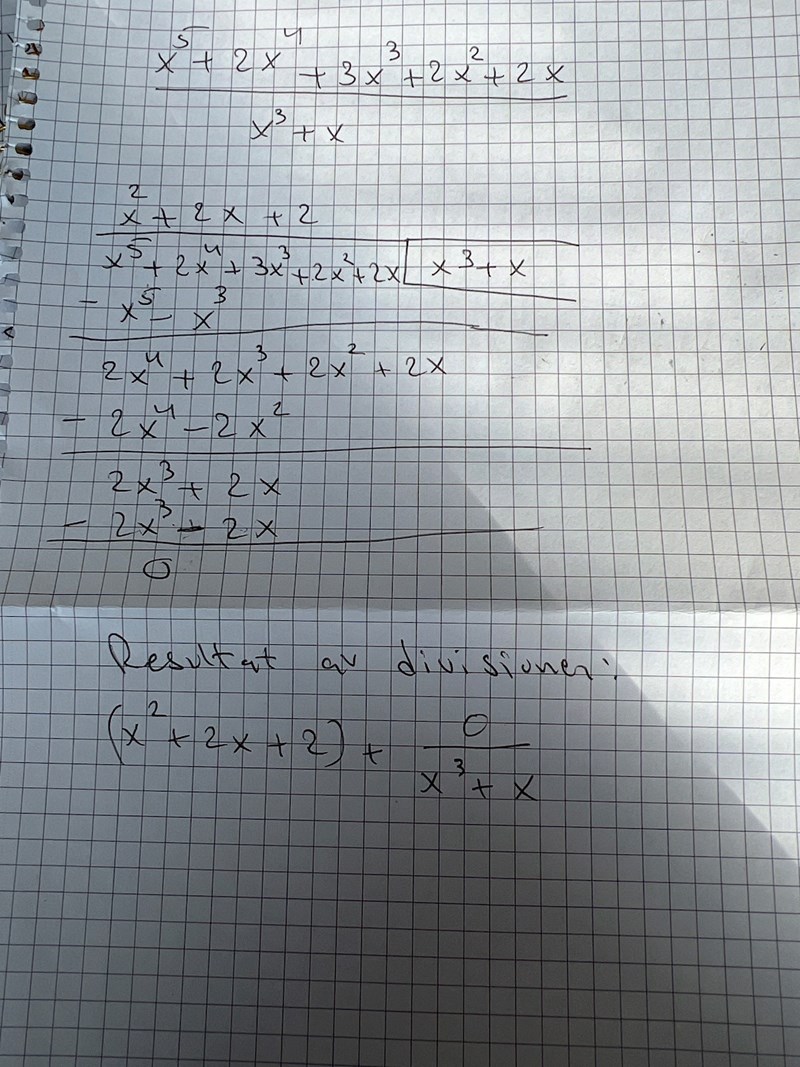 x⁵ + 2x⁴ + 3x³ + 2x² + 2x
x³ + x
x² + 2x + 2
x⁵ + 2x⁴ + 3x³ + 2x² + 2x x³ + x
- x⁵ - x³
2x⁴ + 2x³ + 2x² + 2x
- 2x⁴ - 2x²
2x³ + 2x
- 2x³ - 2x
0
Resultat av divisionen:
(x² + 2x + 2) + 0/(x³ + x)